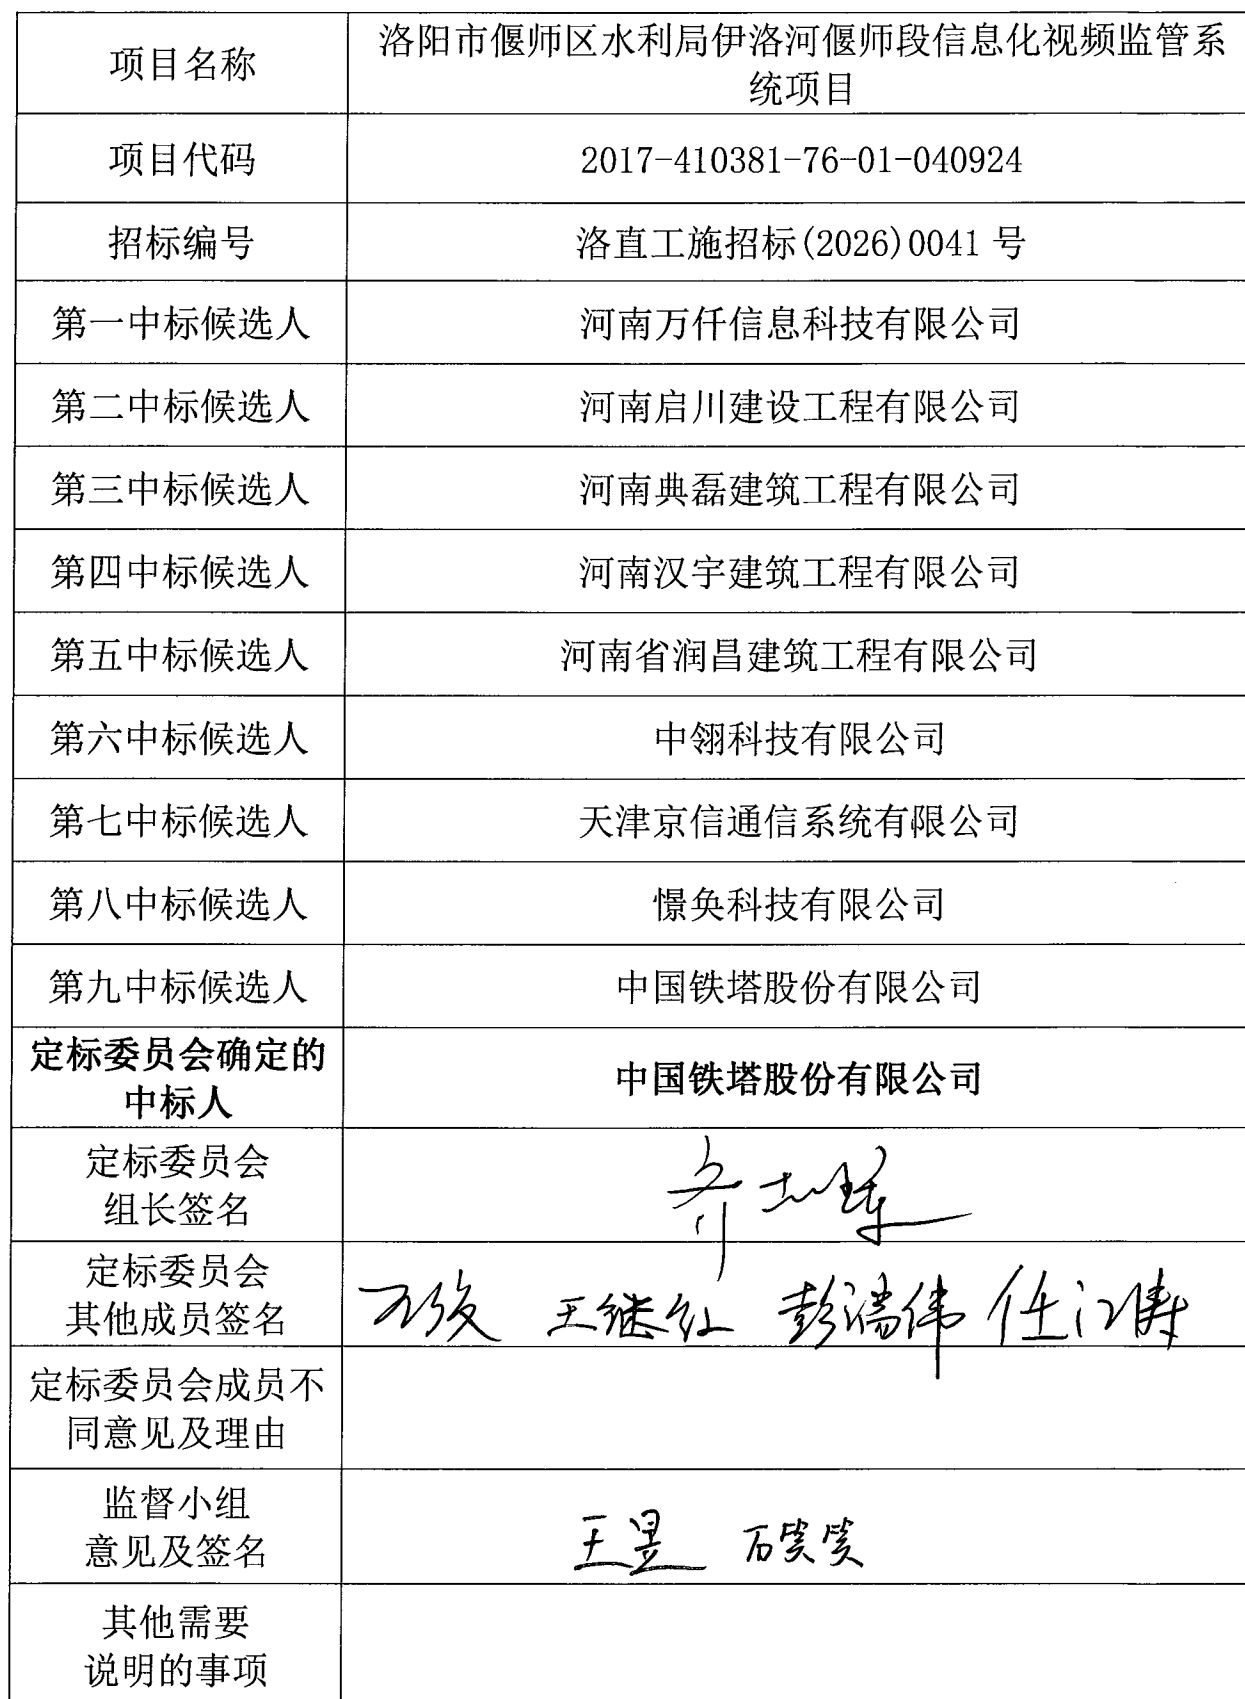 项目名称
洛阳市偃师区水利局伊洛河偃师段信息化视频监管系
统项目
项目代码
2017-410381-76-01-040924
招标编号
洛直工施招标(2026)0041 号
第一中标候选人
河南万仟信息科技有限公司
第二中标候选人
河南启川建设工程有限公司
第三中标候选人
河南典磊建筑工程有限公司
第四中标候选人
河南汉宇建筑工程有限公司
第五中标候选人
河南省润昌建筑工程有限公司
第六中标候选人
中翎科技有限公司
第七中标候选人
天津京信通信系统有限公司
第八中标候选人
憬奂科技有限公司
第九中标候选人
中国铁塔股份有限公司
定标委员会确定的
中标人
中国铁塔股份有限公司
定标委员会
组长签名
定标委员会
其他成员签名
王继红 彭瑞伟 任江涛
定标委员会成员不
同意见及理由
监督小组
意见及签名
王昱 石笑笑
其他需要
说明的事项